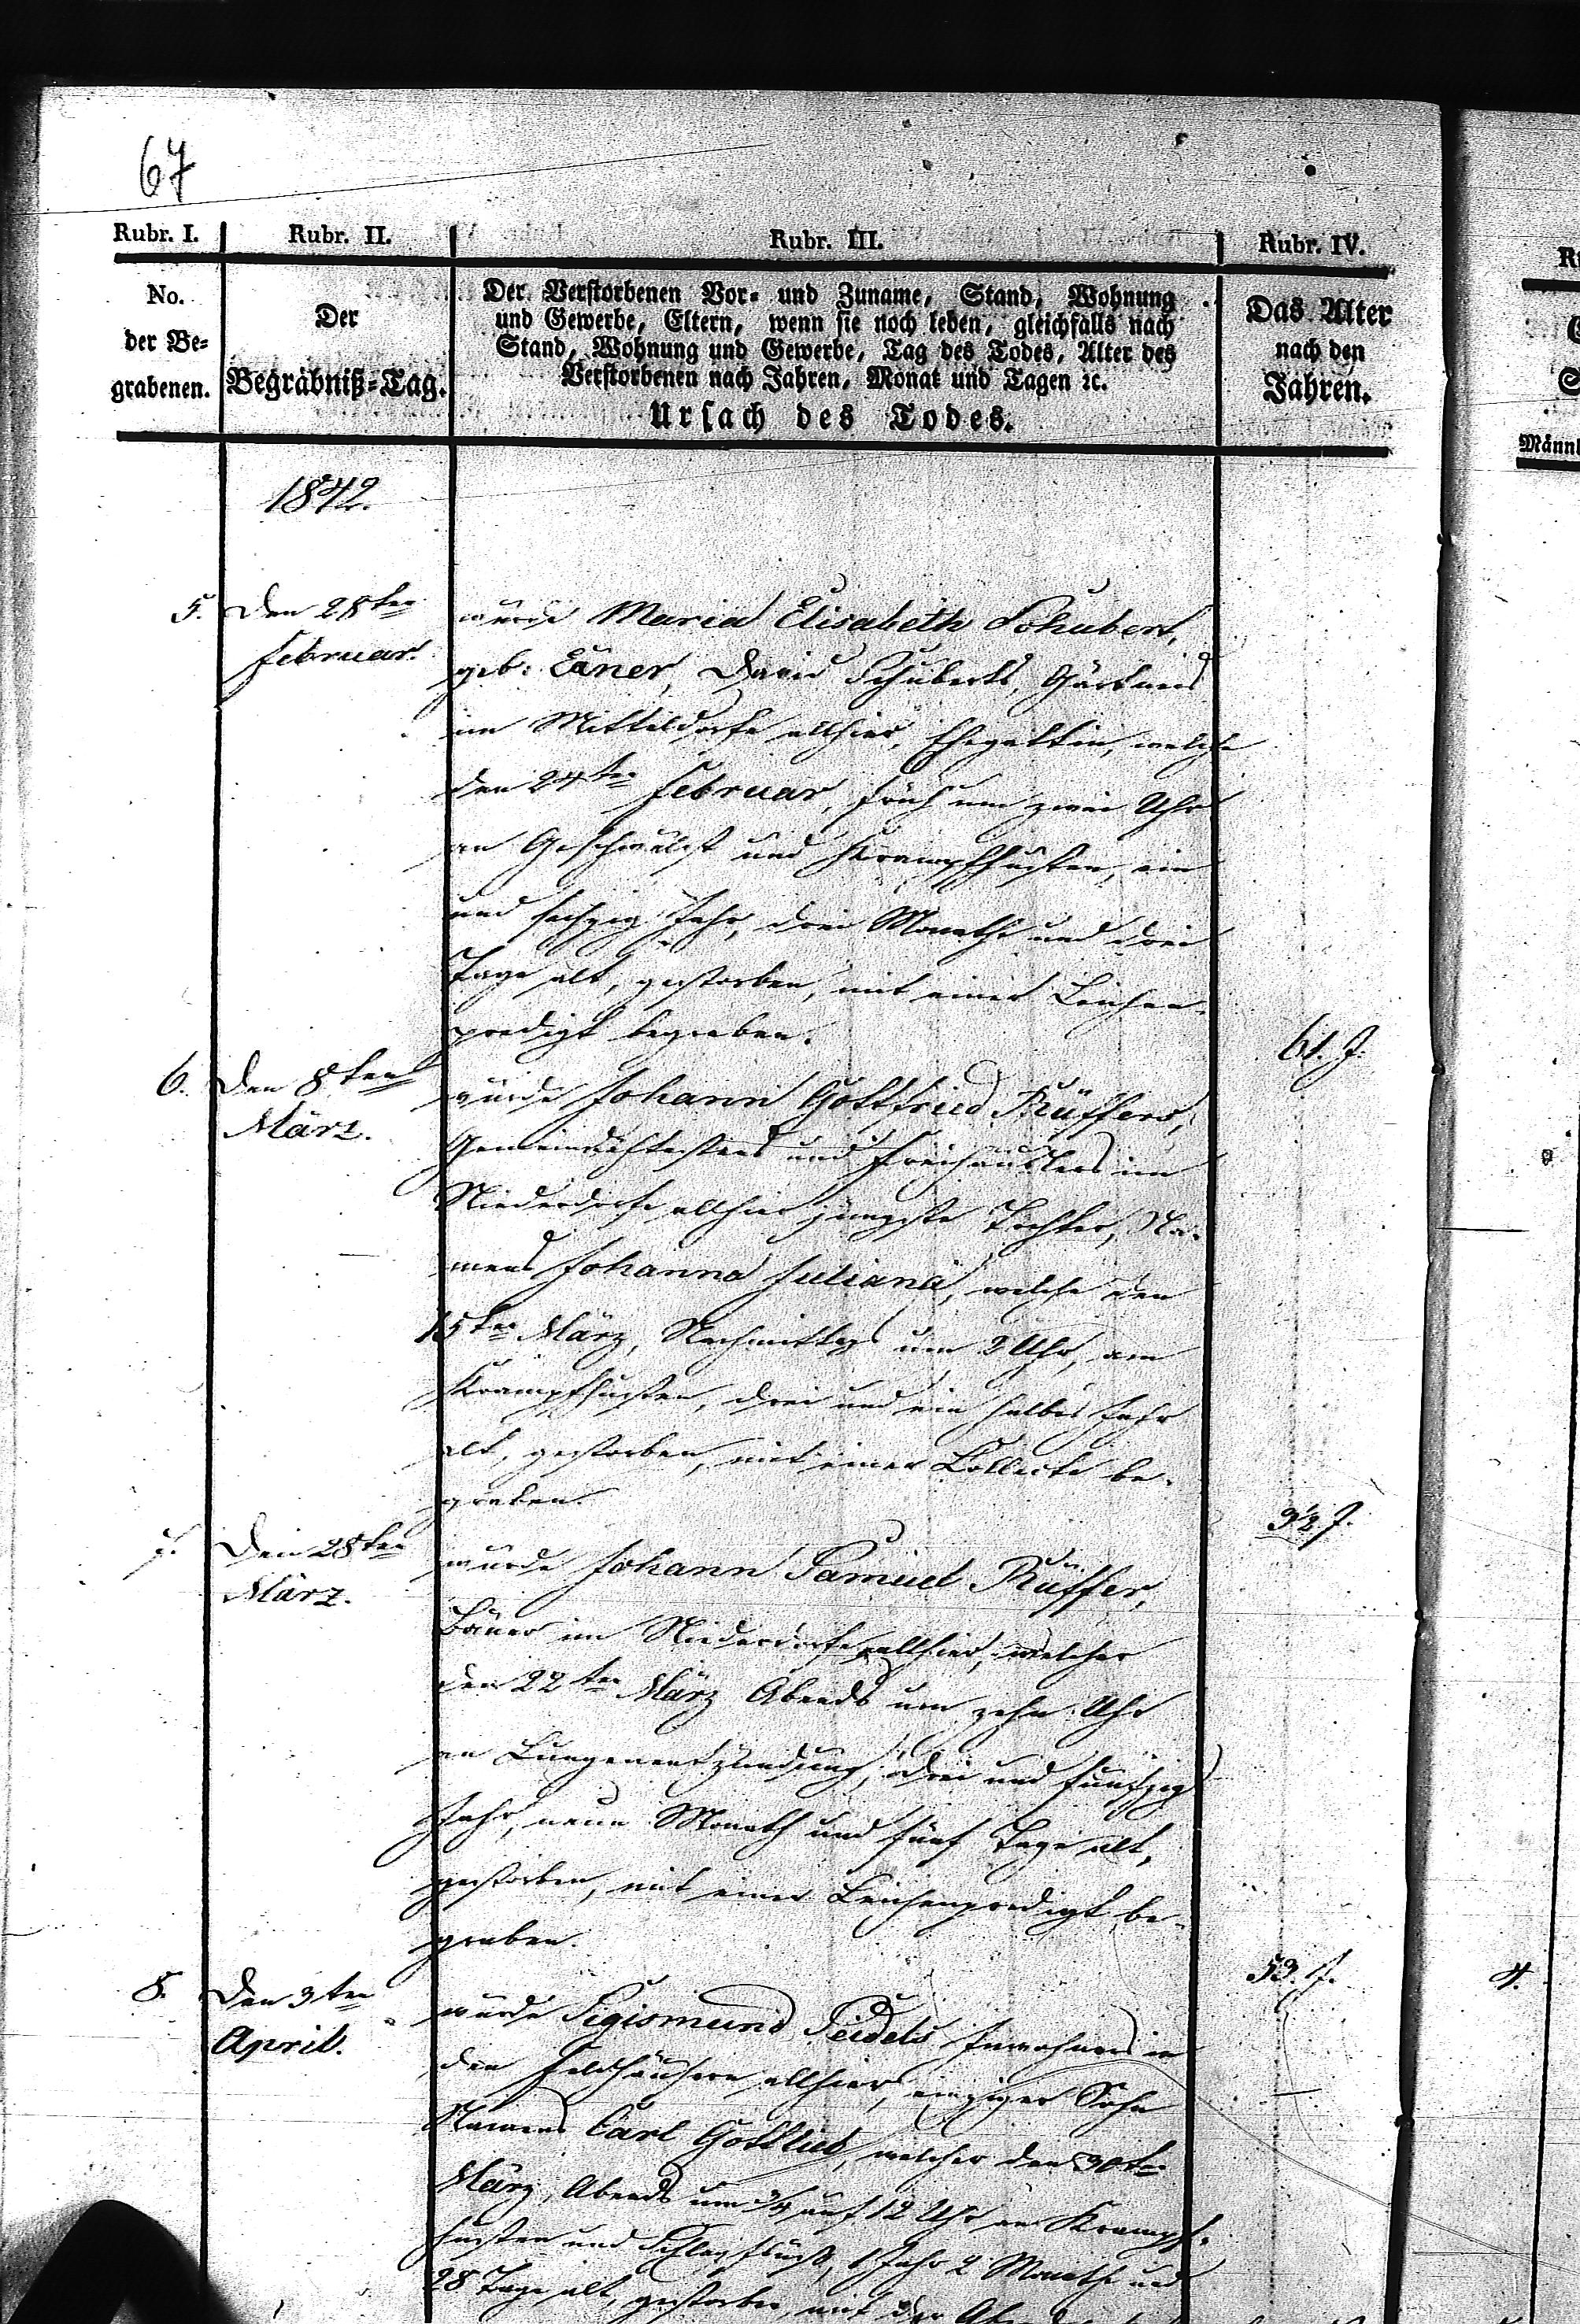 67
Rubr. I. Rubr. II. Rubr. III. Rubr. IV.
No. der Be- grabenen.
Der Begräbniß-Tag.
Der Verstorbenen Vor- und Zuname, Stand, Wohnung
und Gewerbe, Eltern, wenn sie noch leben, gleichfalls nach
Stand, Wohnung und Gewerbe, Tag des Todes, Alter des
Verstorbenen nach Jahren, Monat und Tagen ꝛc.
Ursach des Todes.
Das Alter
nach den
Jahren.
Männl
1842.
5. Den 28ten
Februar.
wurde Maria Elisabeth Schubert,
geb: Exner, David Schuberts, Gärtners
im Mitteldorfe allhier, Ehegattin, welche
den 24ten Februar, früh um zwei Uhr
an Geschwulst und Krampfhusten, ein
und sechzig Jahr, drei Monathe und drei
Tage alt, gestorben, mit einer Leichen-
predigt begraben.
61. J.
6. Den 8ten
März.
wurde Johann Gottfried Rüffers,
Gemeindeältestens und Freihäuslers im
Niederdorfe allhier jüngste Tochter, Na-
mens Johanna Juliana, welche den
15ten März, Nachmittags um 2 Uhr, am
Krampfhusten, drei und ein halbes Jahr
alt, gestorben, mit einer Collecte be-
graben.
3½ J.
7. Den 28ten
März.
wurde Johann Samuel Rüffer,
Bauer im Niederdorfe allhier, welcher
den 22ten März Abends um zehn Uhr
an Lungenentzündung, drei und funfzig
Jahr, neun Monath und fünf Tage alt,
gestorben, mit einer Leichenpredigt be-
graben.
53. J.
4.
8. Den 3ten
April.
wurde Sigismund Seidels Inwohners in
den Feldhäusern allhier, einziger Sohn
Namens Carl Gottlieb, welcher den 30ten
März, Abends um ¾ auf 12 Uhr an Krampf-
husten und Schlagfluß, 1 Jahr 2 Monathe und
28 Tage alt, gestorben, mit der